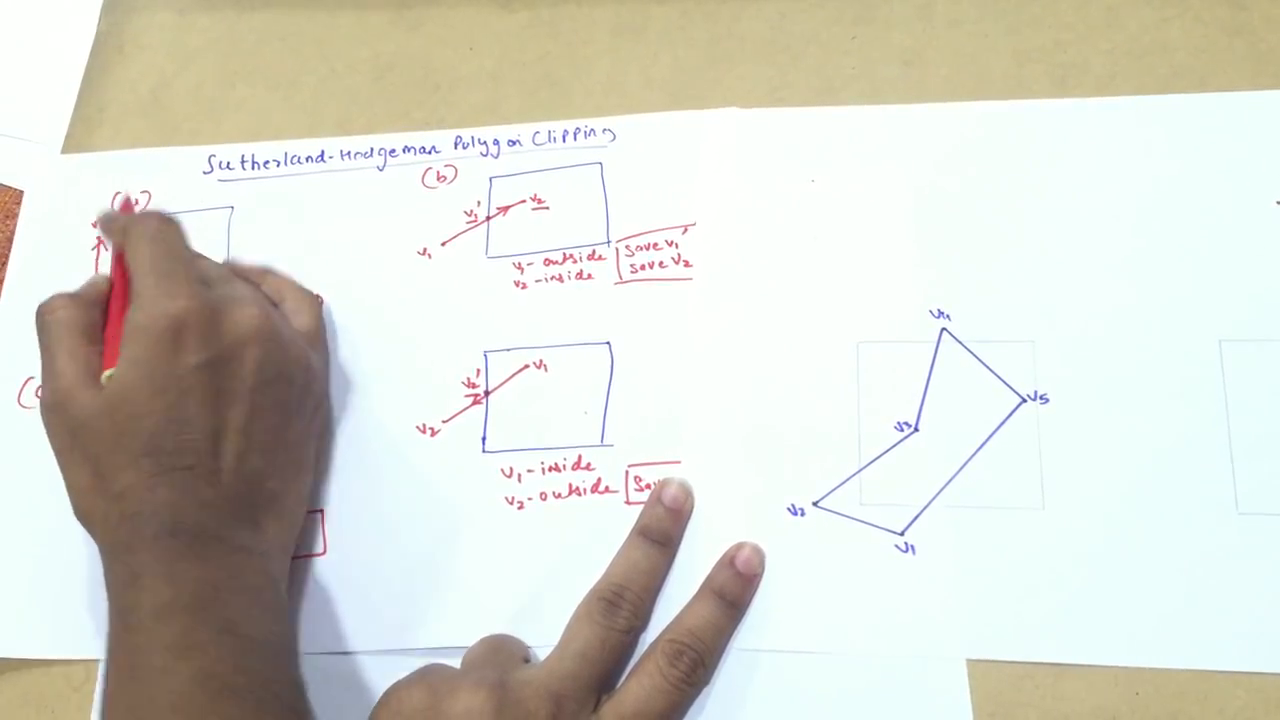 Sutherland-Hodgeman Polygon Clipping
(b)
v1' v2
v1
v1 - outside
v2 - inside
save v1'
save v2
v1
v2'
v2
v1 - inside
v2 - outside
v4
v5
v3
v2
v1